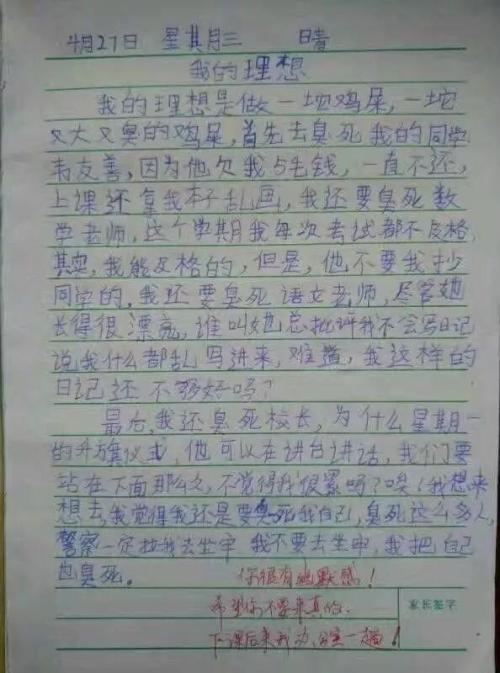 4月27日 星其月三 晴
我的理想
我的理想是做一坨鸡屎,一坨
又大又臭的鸡屎,首先去臭死我的同学
韦友善,因为他欠我5毛钱,一直不还,
上课还拿我本子乱画,我还要臭死数
学老师,这个学期我每次考试都不及格,
其实,我能及格的,但是,他不要我抄
同学的,我还要臭死语文老师,尽管她
长得很漂亮,谁叫她总批评我不会写日记
说我什么都乱写进来,难道,我这样的
日记还不够好吗?
最后,我还臭死校长,为什么星期一
的升旗仪式,他可以在讲台讲话,我们要
站在下面那么久,不觉得我很累吗?唉!我想来
想去,我觉得我还是要臭死我自己,臭死这么多人,
警察一定拉我去坐牢 我不要去坐牢,我把自己
也臭死。
你很有幽默感!
希望你不要来真的.
下课后来我办公室一趟!
家长签字